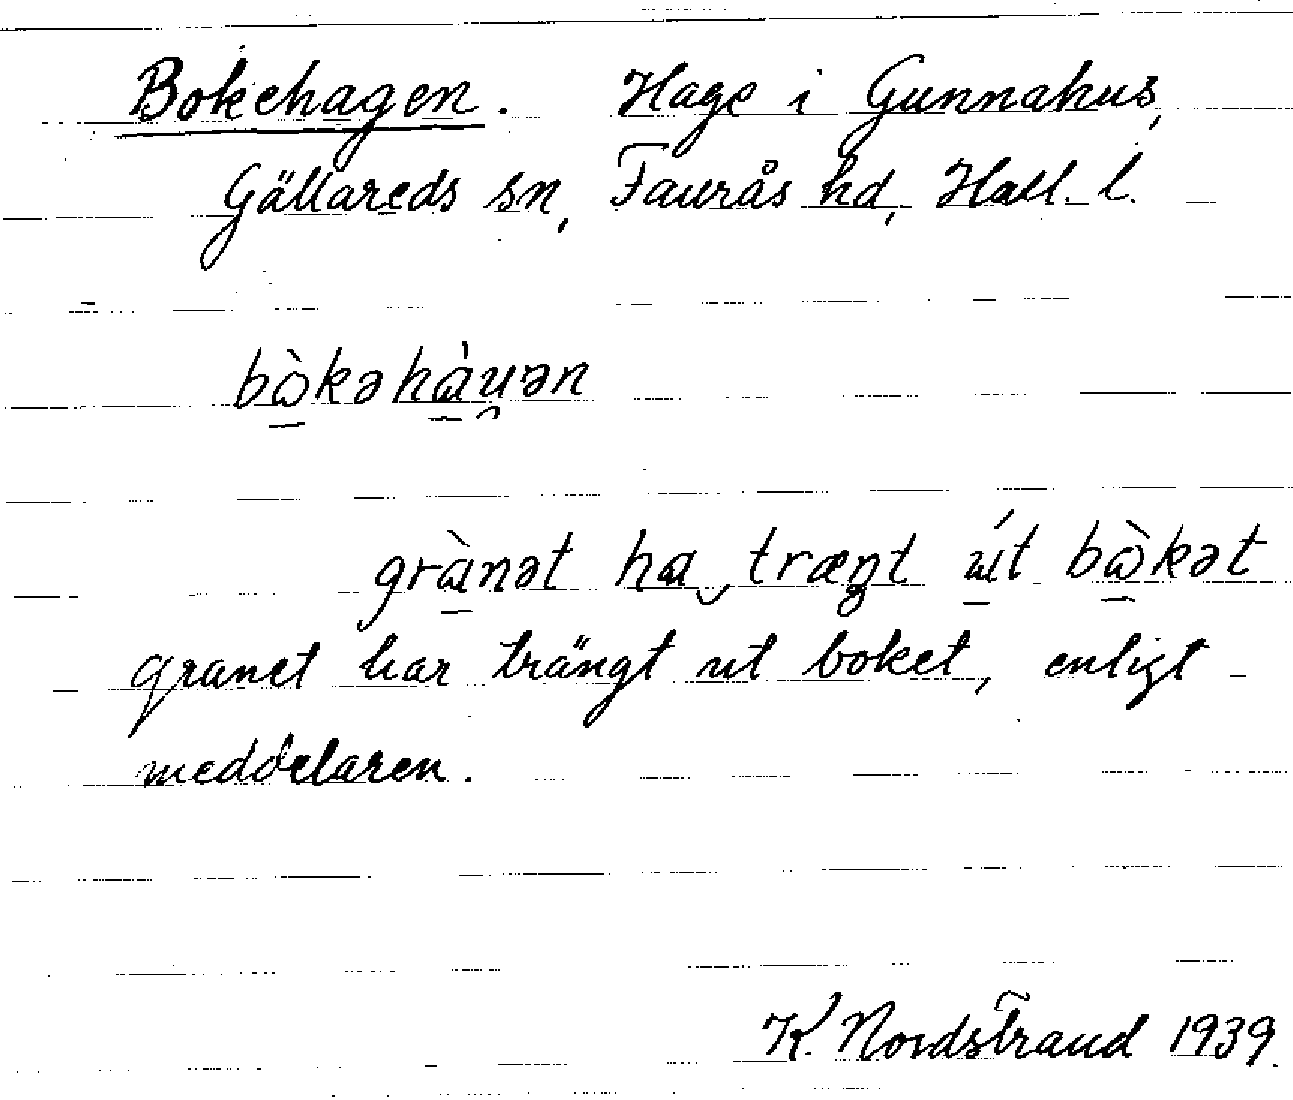 Bokehagen. Hage i Gunnahus,
Gällareds sn, Faurås hd, Hall. l.
bò̱kəhà̱u̯ən
grà̱nət ha̱‿træŋt ú̱t bò̱kət
granet har trängt ut boket, enligt
meddelaren.
K. Nordstrand 1939.